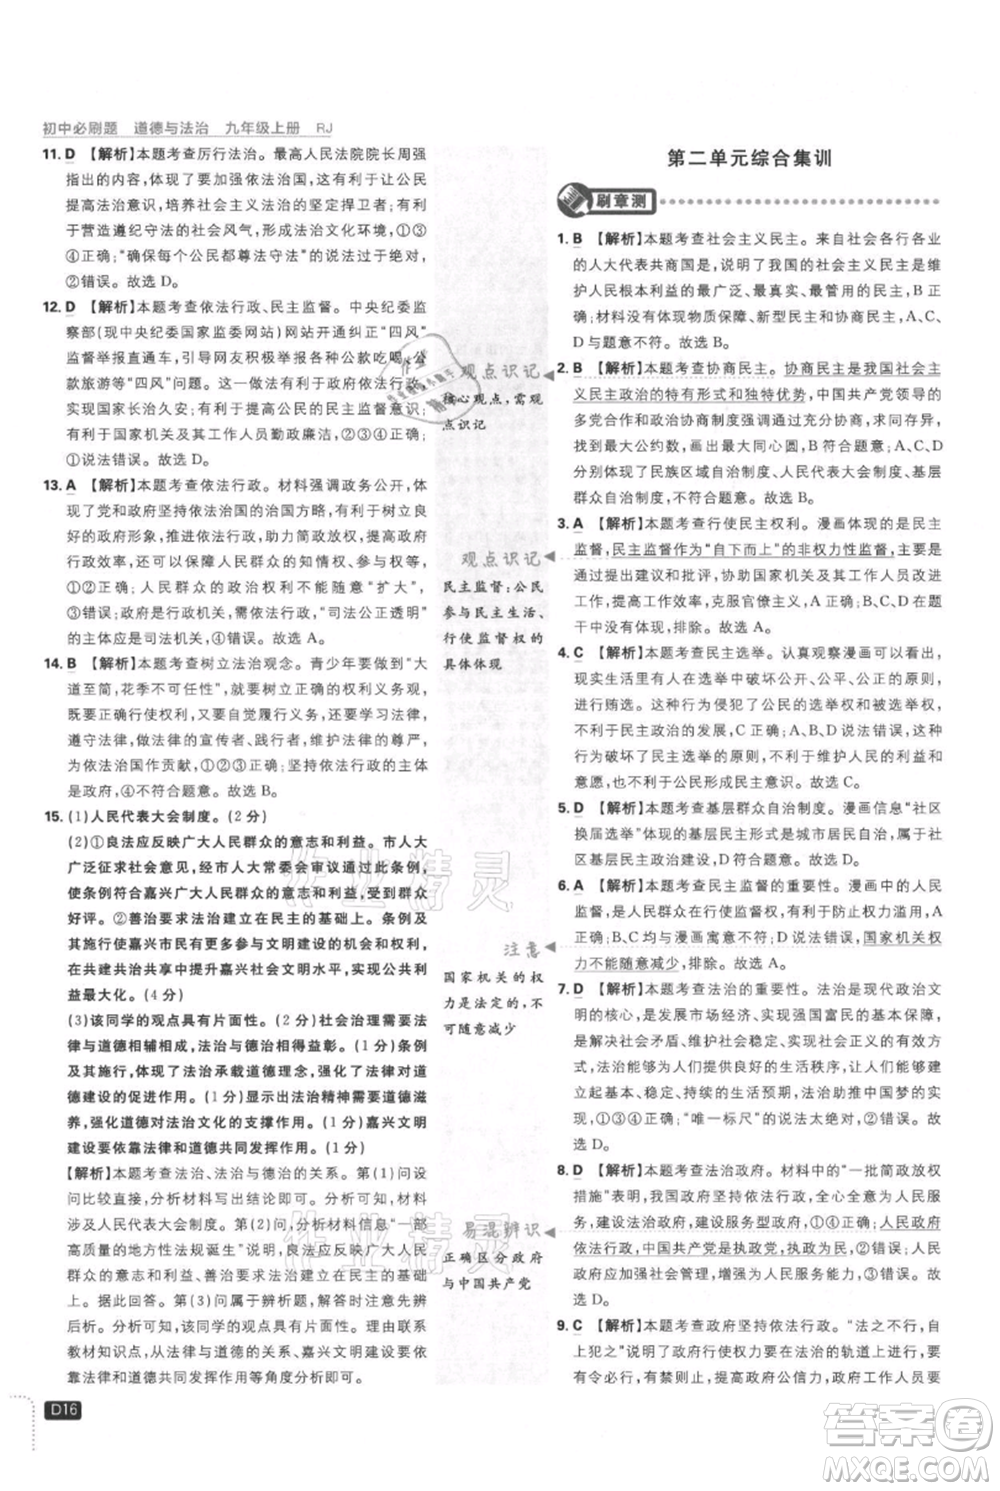 初中必刷题 道德与法治 九年级上册 RJ
11. D 【解析】本题考查厉行法治。最高人民法院院长周强
指出的内容,体现了要加强依法治国,有利于让公民
提高法治意识,培养社会主义法治的坚定捍卫者;有利
于营造遵纪守法的社会风气,优化法治文化环境,①③
④正确;“确保每个公民都尊法守法”的说法过于绝对,
②错误。故选 D。
12. D 【解析】本题考查依法行政、民主监督。中央纪委监
察部(现中央纪委国家监委网站)网站开通纠正“四风”
监督举报直通车,引导网友积极举报各种公款吃喝、公
款旅游等“四风”问题,有利于政府依法行政,有利于实
现国家长治久安;有利于增强群众的民主监督意识;有
利于国家机关及其工作人员自觉做到勤政廉政,①②③
④说法正确。故选 D。
13. A 【解析】本题考查依法行政。材料强调政务公开,体
现了党和政府坚持依法治国的治国方略,有利于树立良
好的政府形象,推进依法行政,助力简政放权,提高政府
行政效率,还可以保障人民群众的知情权、参与权、监督
权,①②正确;人民群众的政治权利不能随意“扩大”,
③错误;政府是行政机关,需依法行政,“司法公正透明”
的主体应当是司法机关,④错误。故选 A。
14. B 【解析】本题考查树立法治观念。青少年要做到“大
道至简,花季不可任性”,就要树立正确的权利义务观,
既要正确行使权利,又要自觉履行义务,要学习法律,
遵守法律,做法律的宣传者、践行者,维护法律的尊严,
为依法治国作贡献,①②④正确;③错误,因为公民不是
行政执法的主体。故选 B。
15. (1)人民代表大会制度。(2 分)
(2)①良法应反映广大人民群众的意志和利益。市人大
广泛征求社会意见,经市人大常委会审议通过的条例,
使条例符合嘉兴广大人民群众的意志和利益,受到群众
好评。②善治要求法治建立在民主的基础上。条例及
其施行增加嘉兴市民有参与文明建设的机会和权利,
在共建共治共享中提升嘉兴社会文明水平,实现公共利
益最大化。(4 分)
(3)该同学的观点具有片面性。(2 分)社会治理需要法
律与道德相辅相成、法治与德治相得益彰。(1 分)以法
治承载道德理念,强化了法律对道德
建设的促进作用。(1 分)显示出法治精神需要道德滋
养,强化道德对法治文化的支撑作用。(1 分)嘉兴文明
建设需要依靠法律和道德共同发挥作用。(1 分)
【解析】本题考查法治、法治与德治的关系。第(1)问设
问比较直接,分析材料,写出结论即可。第(1)问,材料
涉及人民代表大会制度。第(2)问,分析材料信息“一部
高质量的地方性法规诞生”说明,良法应反映广大人民
群众的意志和利益、善治要求法治建立在民主的基础
上。据此回答。第(3)问属于辨析题,首先分析辨别所
给的观点,该同学的观点具有片面性。理由应联系
教材知识点,从法律与道德、法治与德治的关系、建设法
依靠法律和道德共同发挥作用等分析作答即可。
D16
观点识记
核心观点,需观
点识记
观点识记
民主监督:公民
参与民主生活、
行使监督权的
具体体现
注意
国家机关的权
力是法定的,不
可随意减少
易混辨识
正确区分政府
与中国共产党
第二单元综合集训
刷章测
1. B 【解析】本题考查社会主义民主。来自社会各行各业
的人大代表共商国是,说明了我国的社会主义民主是维
护人民根本利益的最广泛、最真实、最管用的民主,B 符
合题意;材料没有体现物质保障、新型民主和协商民主,
A、C、D 与题意不符。故选 B。
2. B 【解析】本题考查协商民主。协商民主是我国社会主
义民主政治的特有形式和独特优势,中国共产党领导的
多党合作和政治协商制度有利于充分协商,求同存异,
找到最大公约数,画出最大同心圆,B 符合题意;A、C、D
分别体现了民族区域自治制度、人民代表大会制度、基层
群众自治制度,不符合题意。故选 B。
3. A 【解析】本题考查行使民主权利。漫画体现的是民主
监督,民主监督作为“自下而上”的非权力性监督,主要是
通过提出建议和批评,协助国家机关及其工作人员改进
工作,提高工作效率,克服官僚主义,A 正确;B、C、D 在题
干中没有体现,排除。故选 A。
4. C 【解析】本题考查民主选举。认真观察漫画可以发现,
现实生活中有人在选举中破坏公开、公平、公正的原则,
进行贿选。这种行为侵犯了公民的选举权和被选举权,
不利于民主政治的发展,C 正确;A、B、D 说法错误,这种
行为破坏了民主选举的原则,不利于维护人民的利益和
意愿,也不利于公民形成民主意识。故选 C。
5. D 【解析】本题考查基层群众自治制度。漫画信息“社区
换届选举”体现的基层民主形式是城市居民自治,属于社
区基层民主政治建设,D 正确;A、B、C 错误。故选 D。
6. A 【解析】本题考查民主监督的重要性。漫画中的人民
监督,是为了规范权力的行使,有利于防止权力滥用,A
正确;B、C 均与漫画寓意不符,D 说法错误,国家机关权
力不能随意减少,排除。故选 A。
7. D 【解析】本题考查法治的重要性。法治是现代政治文
明的核心,是发展市场经济、实现强国富民的基本保障,
是解决社会矛盾、维护社会稳定、实现社会正义的有效方
式。厉行法治,有利于促进良好的社会生活秩序,营造安
全、稳定、持续的社会生活环境,助力推进中国梦的实现,
①③④正确;“唯一标尺”的说法太绝对,②错误。故
选 D。
8. D 【解析】本题考查法治政府。材料中的“一批简政放权
措施”意味着,我国政府坚持依法行政,全心全意为人民服
务,建设法治政府,建设服务型政府,①④正确;人民政府
依法行政,中国共产党是执政党,执政为民,②错误;政府
应当加强社会管理,增强为人民服务能力,③错误。故
选 D。
9. C 【解析】本题考查政府坚持依法行政。“法之不行,自
上犯之”说明了政府行使权力要在法治的轨道上进行,要
有令必行,有禁必止,提高政府公信力,政府工作人员要
作业精灵
作业精灵
答案圈
MXQE.COM